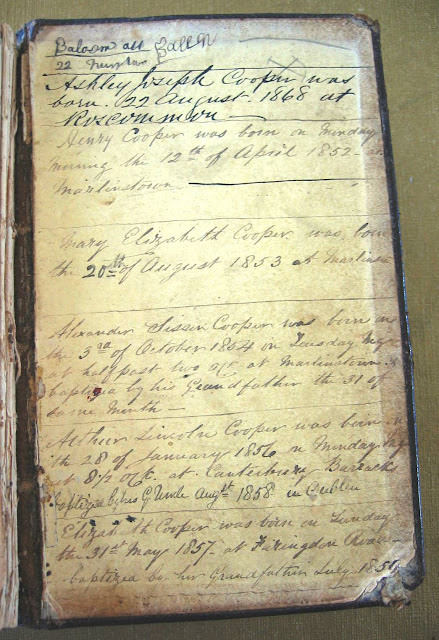 Balosm all Balem
22
Ashley Joseph Cooper was
born 22 August 1868 at
Roscommon
Henry Cooper was born on Munday
morning the 12th of April 1852 at
Martinstown
Mary Elizabeth Cooper was born
the 20th of August 1853 at
Alexander Sisson Cooper was born on
the 3rd of October 1854 on Tuesday
at half past two at Martinstown &
baptized by his Grandfather the 31 of
same Month —
Arthur Lincoln Cooper was born on
the 28 of January 1856 on Munday
at 8½ at Canterbury Barracks
baptized by his G Uncle 1858 in Dublin
Elizabeth Cooper was born on Sunday
the 31st May 1857 at Faringdon Road
baptized by her Grandfather July